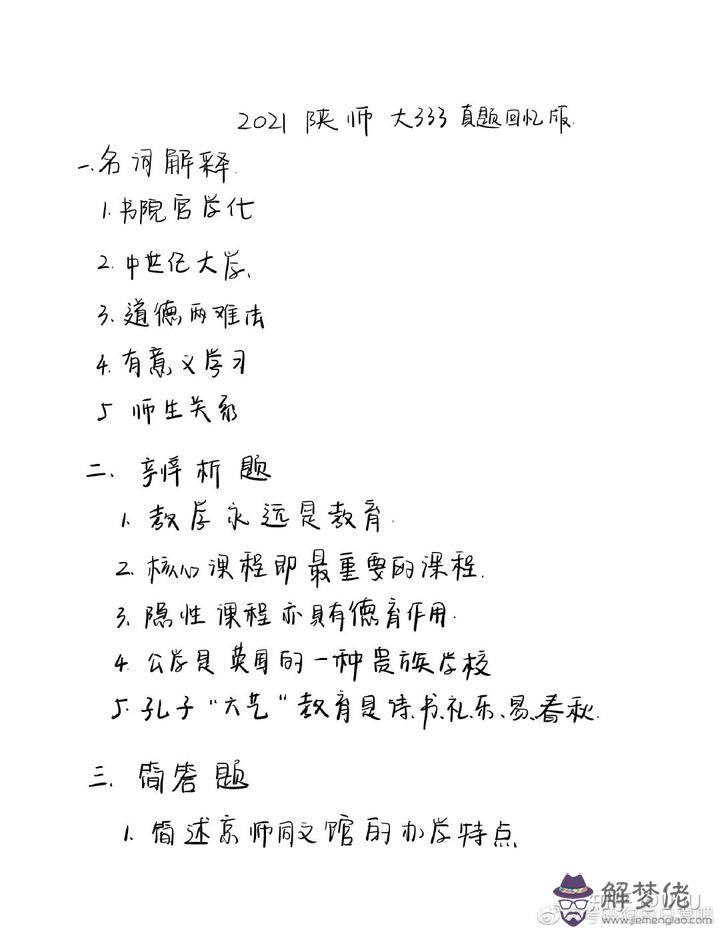 2021 陕师大333真题回忆版
一、名词解释
1.书院官学化
2.中世纪大学、
3.道德两难法
4.有意义学习
5 师生关系
二、辨析题
1.教学永远是教育.
2.核心课程即最重要的课程.
3.隐性课程亦具有德育作用.
4.公学是英国的一种贵族学校
5.孔子“六艺”教育是诗、书、礼、乐、易、春秋.
三、简答题
1.简述京师同文馆的办学特点
解梦佬
www.jiemenglao.com